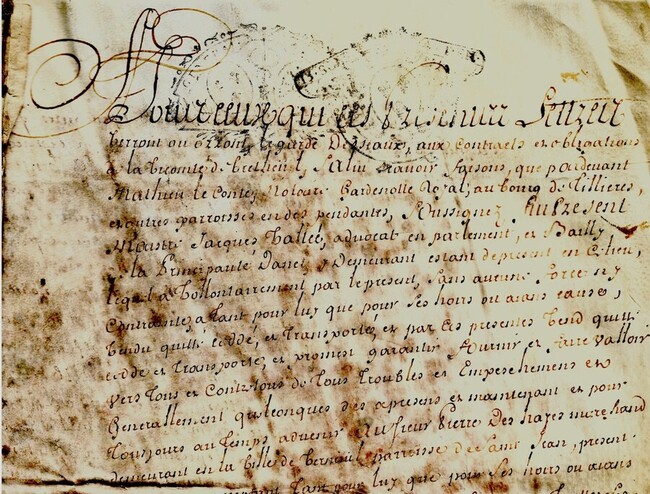 A Tous ceux qui ces presentes Lettres
Verront ou orront, le garde Des seaux, aux Contracts et obligations
de la Viconté de Bretheuil, Salut Scavoir faisons, que pardevant
Mathieu le Conte, Notaire Gardenotte Royal, au bourg de Tillieres,
et autres parroisses en despendantes, soussigné, fut present
Maistre Jacques Vallée, advocat en parlement, et Bailly
de la Principauté Danet, y demeurant estant de present en ce lieu,
lequel a vollontairement par le present, sans aucune force ny
contrainte, a tant pour luy que pour ses hoirs ou aians cause,
Vendu quitté ceddé, et transporté, et par ces presentes Vend quitte
cedde et transporte, et promest garantir fournir et faire valloir
vers tous et contre tous de tous troubles et Empeschemens en
Generallement quelconques des apresent et maintenant et pour
tousjours au temps advenir Au sieur Pierre Des hayes marchand
demeurant en la Ville de Verneuil parroisse de saint Jean, present
tant pour luy que pour ses hoirs ou aians